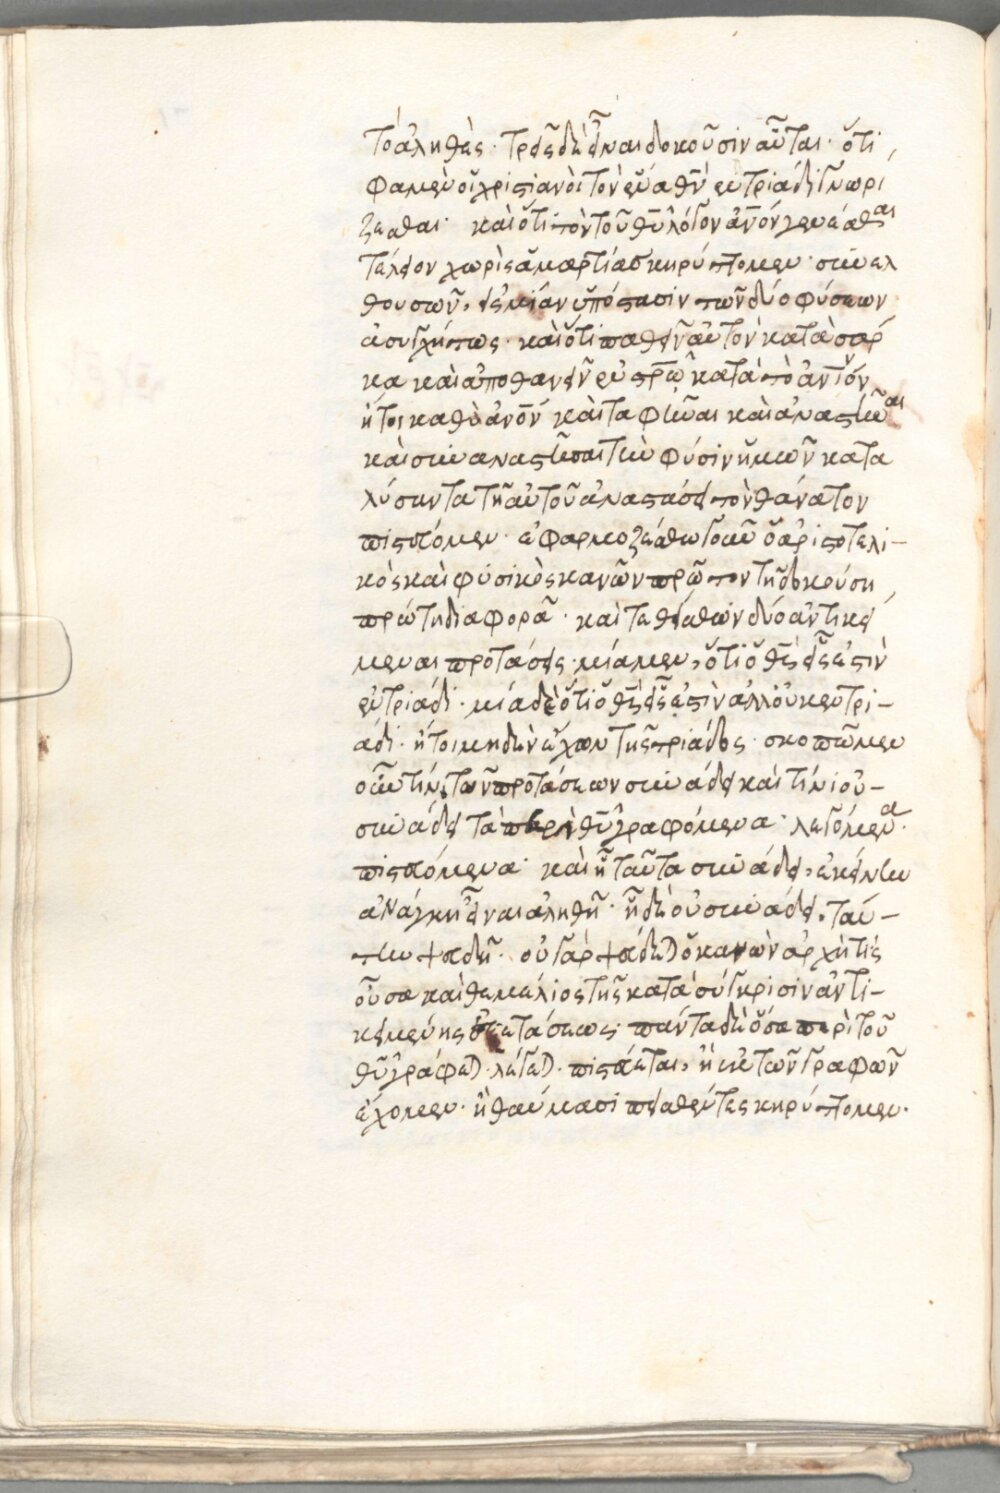 τὸ ἀληθές· τρεῖς δὲ εἶναι δοκοῦσιν αὗται· ὅτι
φαμὲν οἱ χριστιανοὶ τὸν ἕνα θν ἐν τριάδι γνωρί
ζεσθαι· καὶ ὅτι τὸν τοῦ θυ λόγον ἄνον γενέσθαι
τέλειον χωρὶς ἁμαρτίας κηρύττομεν· συνελ
θουσῶν, εἰς μίαν ὑπόστασιν τῶν δύο φύσεων
ἀσυγχύτως· καὶ ὅτι παθεῖν αὐτὸν κατὰ σάρ
κα καὶ ἀποθανεῖν ἐν στρω κατὰ τὸ ἄνινον
ἤτοι καθὸ ἄνον καὶ ταφῆναι καὶ ἀναστῆναι
καὶ συναναστῆσαι τὴν φύσιν ἡμῶν κατα
λύσαντα τῆ αὐτοῦ ἀναστάσει τὸν θάνατον
πιστεύομεν· ἐφαρμοζέσθω γοῦν ὁ ἀριστοτελι-
κὸς καὶ φυσικὸς κανὼν πρῶτον τῆ δοκούση
πρώτη διαφορᾶ· καὶ τεθείσθων δύο ἀντικεί
μεναι προτάσεις· μία μεν, ὅτι ὁ θς εἷς ἐστὶν
ἐν τριάδι· μία δὲ ὅτι ὁ θς εἷς ἐστὶν ἀλλ' οὐκ ἐν τρι-
άδι· ἤτοι μηδὲν ἔχων τῆς τριάδος· σκοπῶμεν
οὖν τίνι τῶν προτάσεων συνάδει καὶ τίνι οὐ-
συνάδει τὰ περὶ θυ γραφόμενα· λεγόμενα·
πιστευόμενα· καὶ ᾗ ταῦτα συνάδει, ἐκείνην
ἀνάγκη εἶναι ἀληθῆ· ᾗ δὲ οὐ συνάδει, ταύ-
την ψευδῆ· οὐ γὰρ ψεύδεται ὁ κανὼν ἀρχή τις
οὖσα καὶ θεμέλιος τῆς κατὰ σύγκρισιν ἀντι-
κειμένης ἐξετάσεως· πάντα δὲ ὅσα περὶ τοῦ
θυ γράφεται· λέγεται· πιστεύεται, ἢ ἐκ τῶν γραφῶν
ἔχομεν· ἢ θαύμασι πεισθέντες κηρύττομεν·